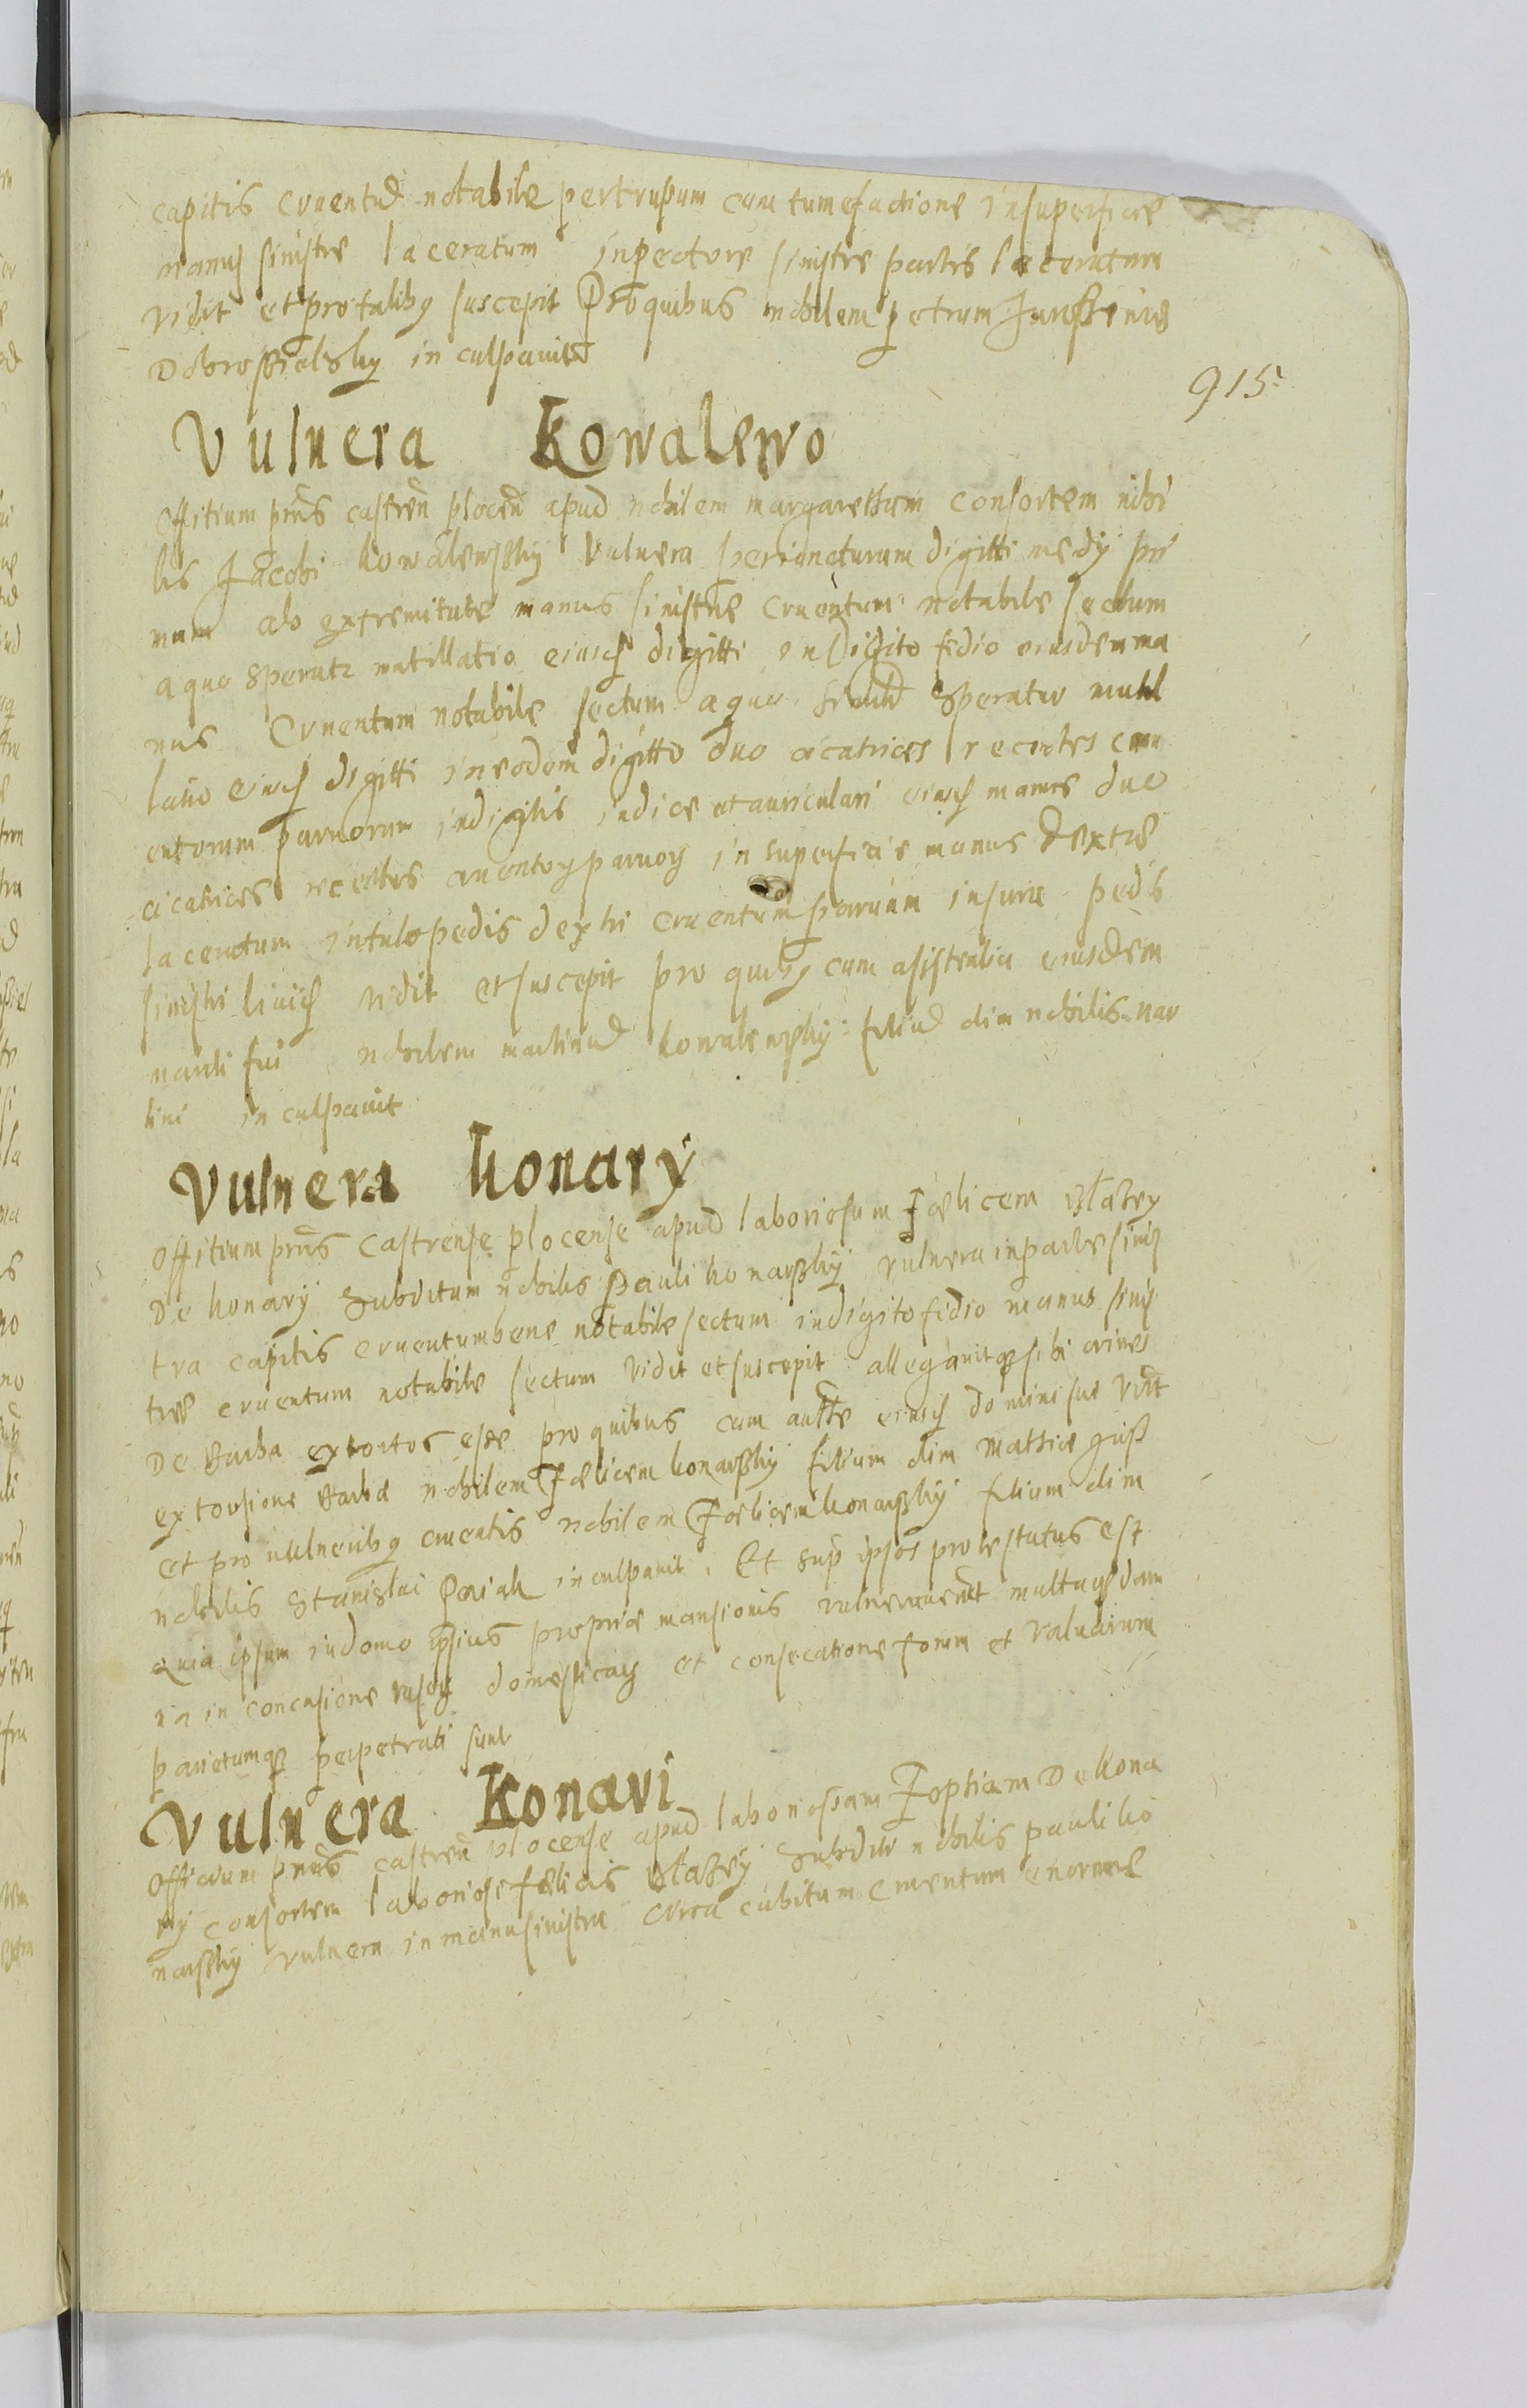 capitis cruentũ notabile pertrusum cum tumefactione in superficie
manus sinistre laceratum in pectore sinistre partis laceratum
vidit et pro talibꝫ suscepit Pro quibus nobilem petrum
Dobrosielsky inculpavit
915
Vulnera Kowalewo
Offitium pñs castreñ ploceñ apud nobilem margaretham consortem nobi
lis Jacobi kowalewsky Vulnera per iuncturam digitti medÿ pri
mam ab extremitate manus sinistræ cruentum notabile sectum
a quo speratr mutillatio eiusꝗ digitti in digito fidio eiusdem ma
nus cruentum notabile sectum a quo similr speratur mutil
latio eiusꝗ digitti in eodem digitto duo cicatrices recentes cru
entorum parvorum in digitis indice et auriculari eiusꝗ manus due
cicatrices recentes cruentoꝝ parvoꝝ in superficie manus dextre
laceratum in talo pedis dextri cruentum parvum in sura pedis
sinistri vidit et suscepit pro quibꝫ cum asistentia eiusdem
mariti sui nobilem martinũ kowalewsky filiũ olim nobilis mar
tini inculpavit
Vulnera Konarÿ
Offitium pñs Castrense plocense apud laboriosum Fœlicem Blazey
De konarÿ Subditum nobilis Pauli konarsky vulnera in parte sinis
tra capitis cruentum bene notabile sectum in digito fidio manus sinis
træ cruentum notabile sectum vidit et suscepit allegavitqꝫ sibi crines
De Barba extortos esse pro quibus cum eiusꝗ domini sui
extorsione Barbæ nobilem Fœlicem konarsky filium olim Mathiæ
et pro vulneribꝫ cruentis nobilem Fœlicem konarsky filium olim
nobilis Stanislai inculpavit. Et sup ipsos protestatus est
Quia ipsum in domo ipsius propriæ mansionis vulneraverũt multaqꝫ dam
na in concusione vasoꝝ domesticaꝝ et consecatione forum et valvarum
parietumqꝫ perpetrati sunt
Vulnera Konari
Officium pñs castreñ plocense apud laboriosam Zophiam De Kona
rÿ consortem laboriosi fœlicis Blazeÿ Subditi nobilis pauli ko
narsky vulnera in manu sinistra circa cubitum cruentum enorme